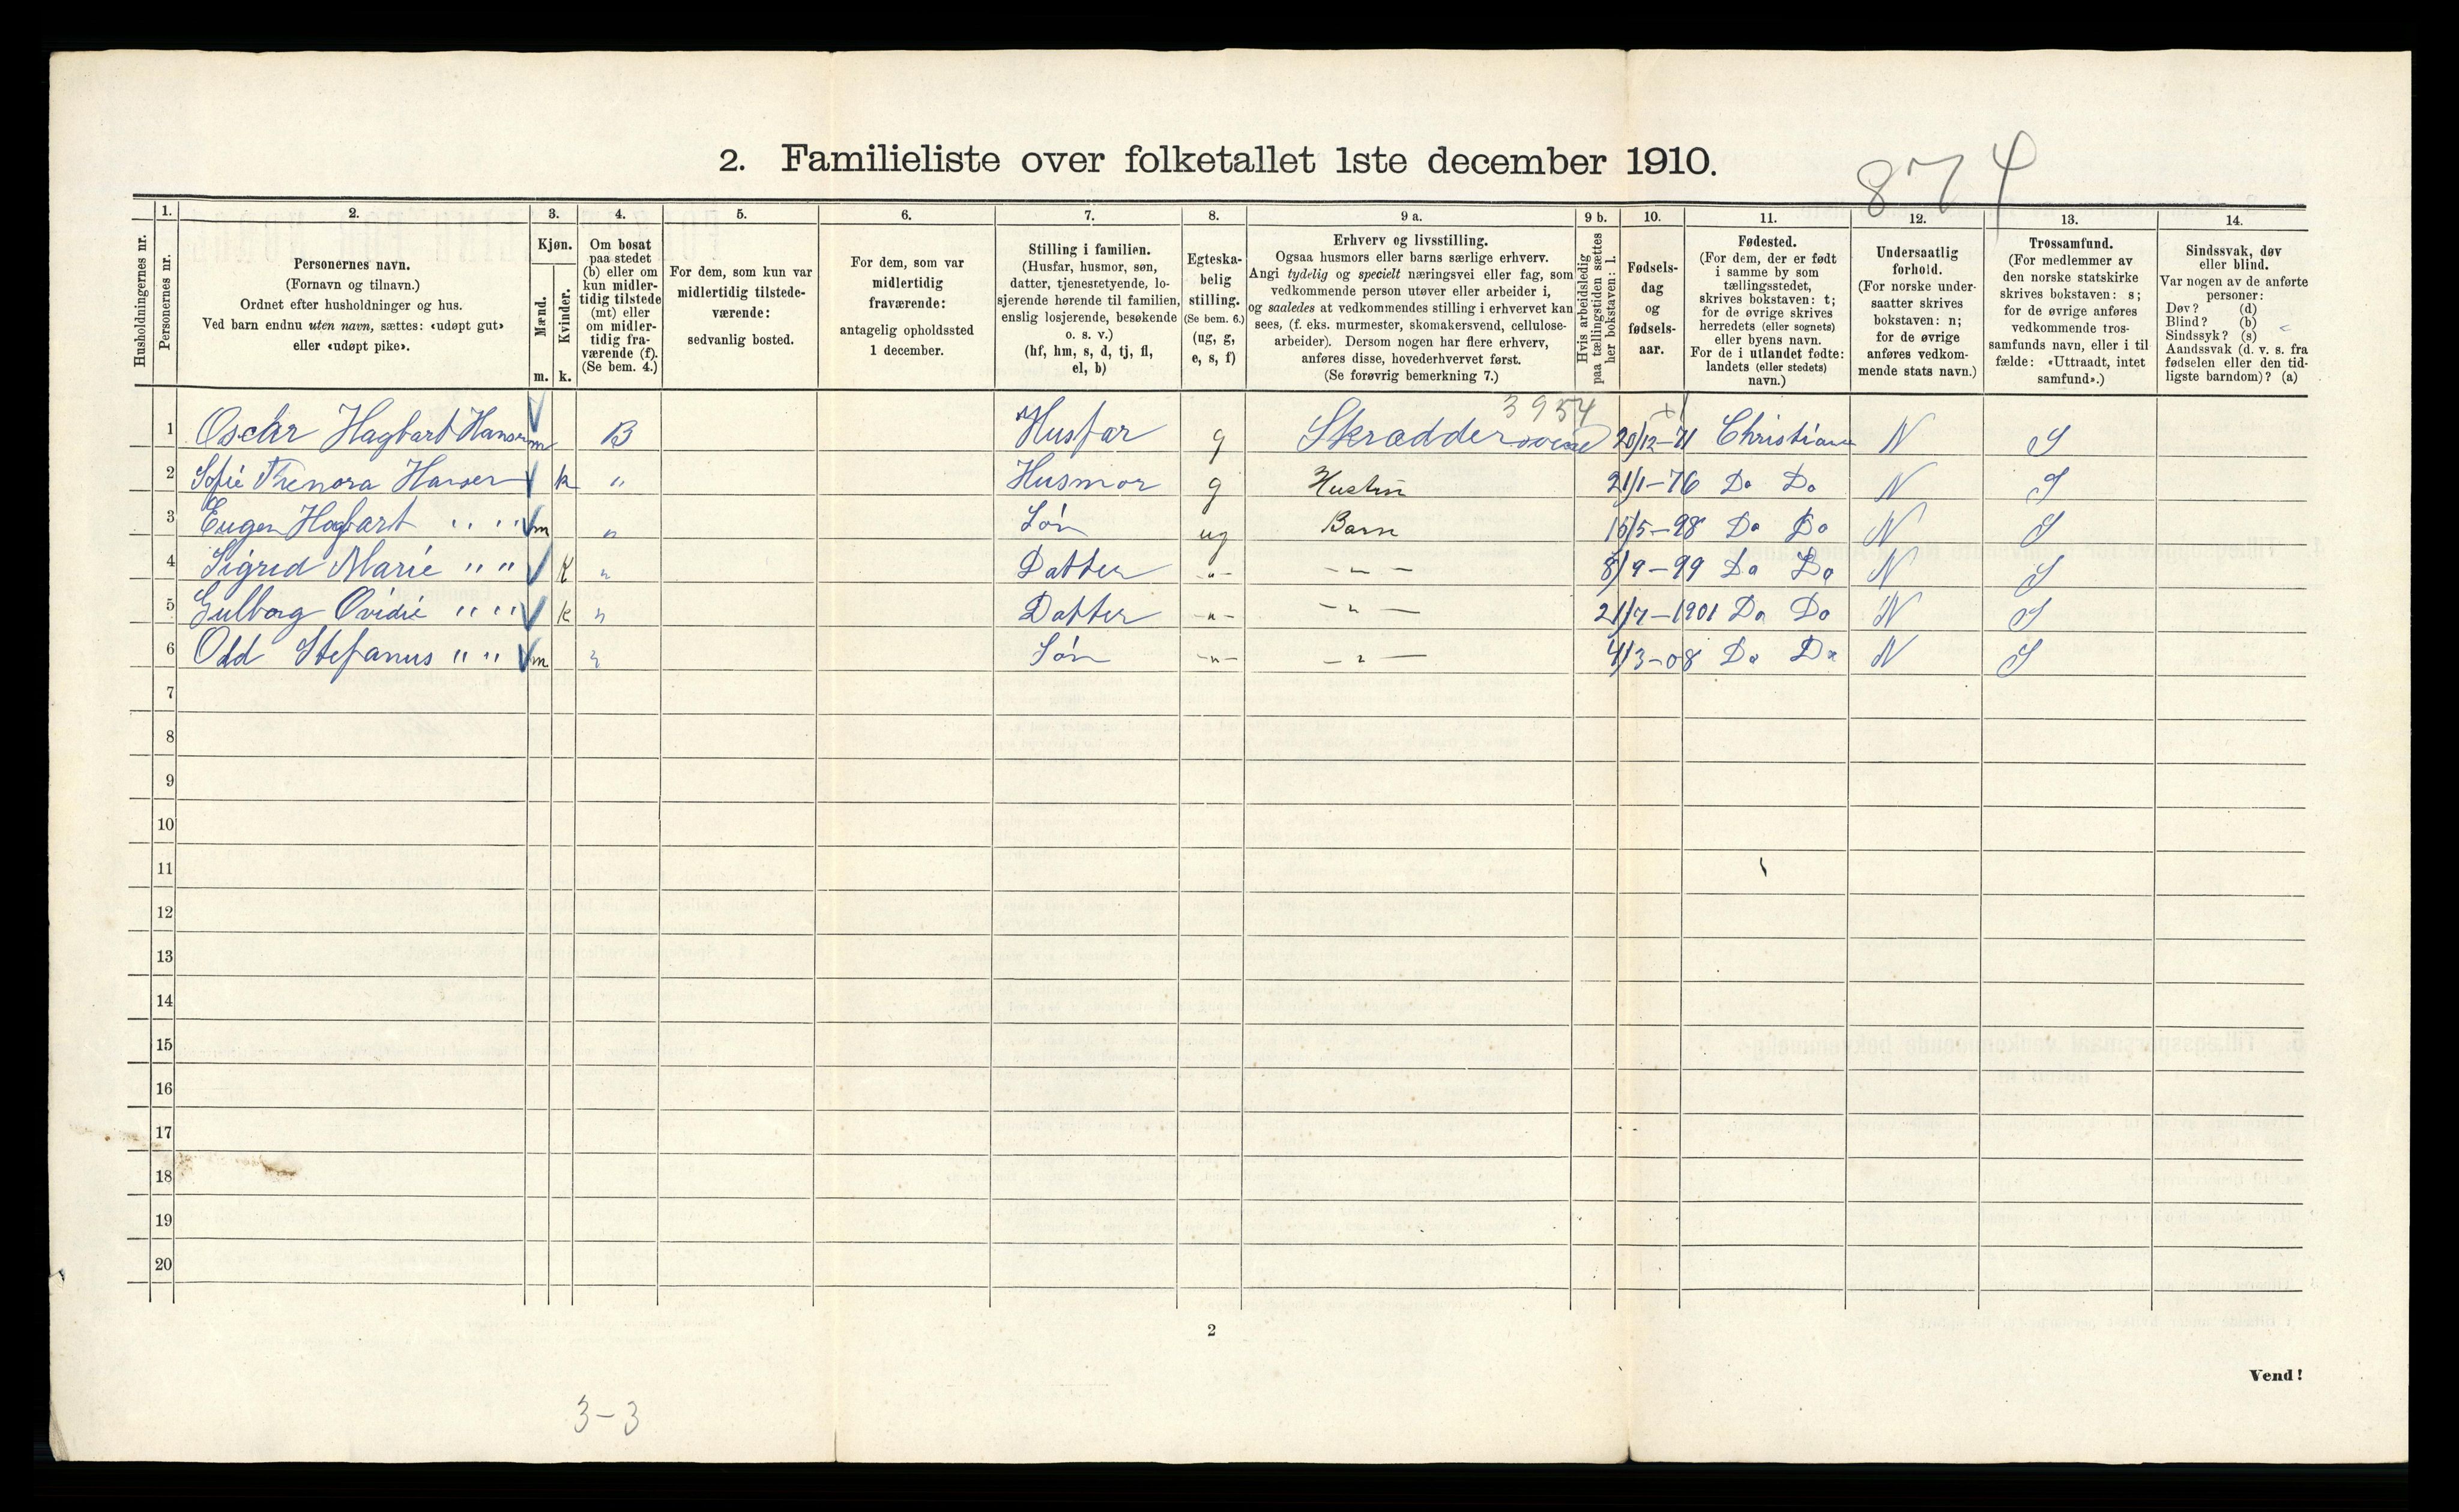 874
2. Familieliste over folketallet 1ste december 1910.
1. 2. 3. 4. 5. 6. 7. 8. 9 a. 9 b. 10. 11. 12. 13. 14.
Husholdningernes nr.
Personernes nr.
Personernes navn.
(Fornavn og tilnavn.)
Ordnet efter husholdninger og hus.
Ved barn endnu uten navn, sættes: «udøpt gut»
eller «udøpt pike».
Kjøn.
Mænd.
Kvinder.
m. k.
Om bosat
paa stedet
(b) eller om
kun midler-
tidig tilstede
(mt) eller
om midler-
tidig fra-
værende (f).
(Se bem. 4.)
For dem, som kun var
midlertidig tilstede-
værende:
sedvanlig bosted.
For dem, som var
midlertidig
fraværende:
antagelig opholdssted
1 december.
Stilling i familien.
(Husfar, husmor, søn,
datter, tjenestetyende, lo-
sjerende hørende til familien,
enslig losjerende, besøkende
o. s. v.)
(hf, hm, s, d, tj, fl,
el, b)
Egteska-
belig
stilling.
(Se bem. 6.)
(ug, g,
e, s, f)
Erhverv og livsstilling.
Ogsaa husmors eller barns særlige erhverv.
Angi tydelig og specielt næringsvei eller fag, som
vedkommende person utøver eller arbeider i,
og saaledes at vedkommendes stilling i erhvervet kan
sees, (f. eks. murmester, skomakersvend, cellulose-
arbeider). Dersom nogen har flere erhverv,
anføres disse, hovederhvervet først.
(Se forøvrig bemerkning 7.)
Hvis arbeidsledig
paa tællingstiden sættes
her bokstaven: l.
Fødsels-
dag
og
fødsels-
aar.
Fødested.
(For dem, der er født
i samme by som
tællingsstedet,
skrives bokstaven: t;
for de øvrige skrives
herredets (eller sognets)
eller byens navn.
For de i utlandet fødte:
landets (eller stedets)
navn.)
Undersaatlig
forhold.
(For norske under-
saatter skrives
bokstaven: n;
for de øvrige
anføres vedkom-
mende stats navn.)
Trossamfund.
(For medlemmer av
den norske statskirke
skrives bokstaven: s;
for de øvrige anføres
vedkommende tros-
samfunds navn, eller i til-
fælde: «Uttraadt, intet
samfund».)
Sindssvak, døv
eller blind.
Var nogen av de anførte
personer:
Døv? (d)
Blind? (b)
Sindssyk? (s)
Aandssvak (d. v. s. fra
fødselen eller den tid-
ligste barndom)? (a)
3954
1 Oscar Hagbart Hansen m B Husfar g Skræddersvend 20/12-71 Christiania N S
2 Sofie Hansen k " Husmor g Hustru 21/1-76 Do Do N S
3 Eugen Hagbart " " m " Søn ug Barn 15/5-98 Do Do N S
4 Sigrid Marie " " K " Datter -"- -"- 8/9-99 Do Do N S
5 Gulborg Ovidie " " k " Datter -"- -"- 21/7-1901 Do Do N S
6 Odd Stefanus " " m " Søn -"- -"- 4/3-08 Do Do N S
7
8
9
10
11
12
13
14
15
16
17
18
19
20
2
Vend!
3-3